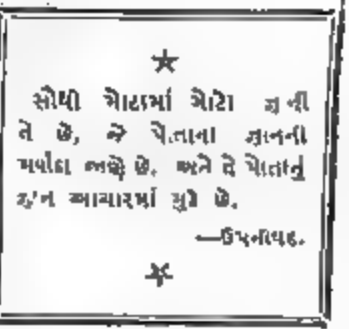 સૌથી મોટામાં મોટો જ્ઞાની
તે છે, જે પોતાના જ્ઞાનની
મર્યાદા જાણે છે. અને જે પોતાનું
જ્ઞાન આચારમાં મુકે છે.
—ઉપનીષદ.